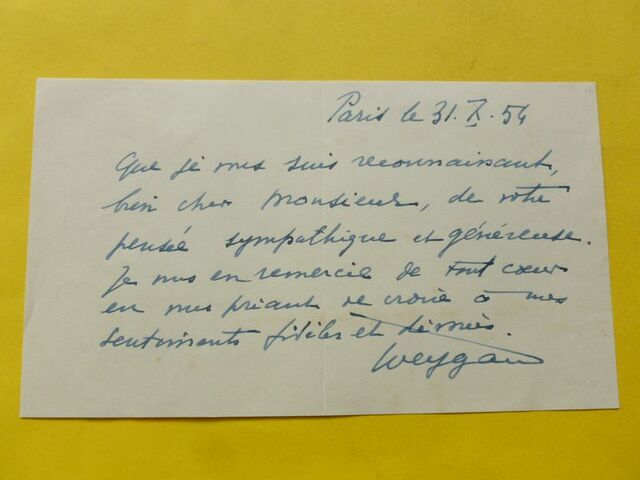 Paris le 31.X.54
Que je vous suis reconnaissant,
bien cher Monsieur, de votre
pensée sympathique et généreuse.
Je vous en remercie de tout cœur
en vous priant de croire à mes
sentiments fidèles et dévoués.
Weygand